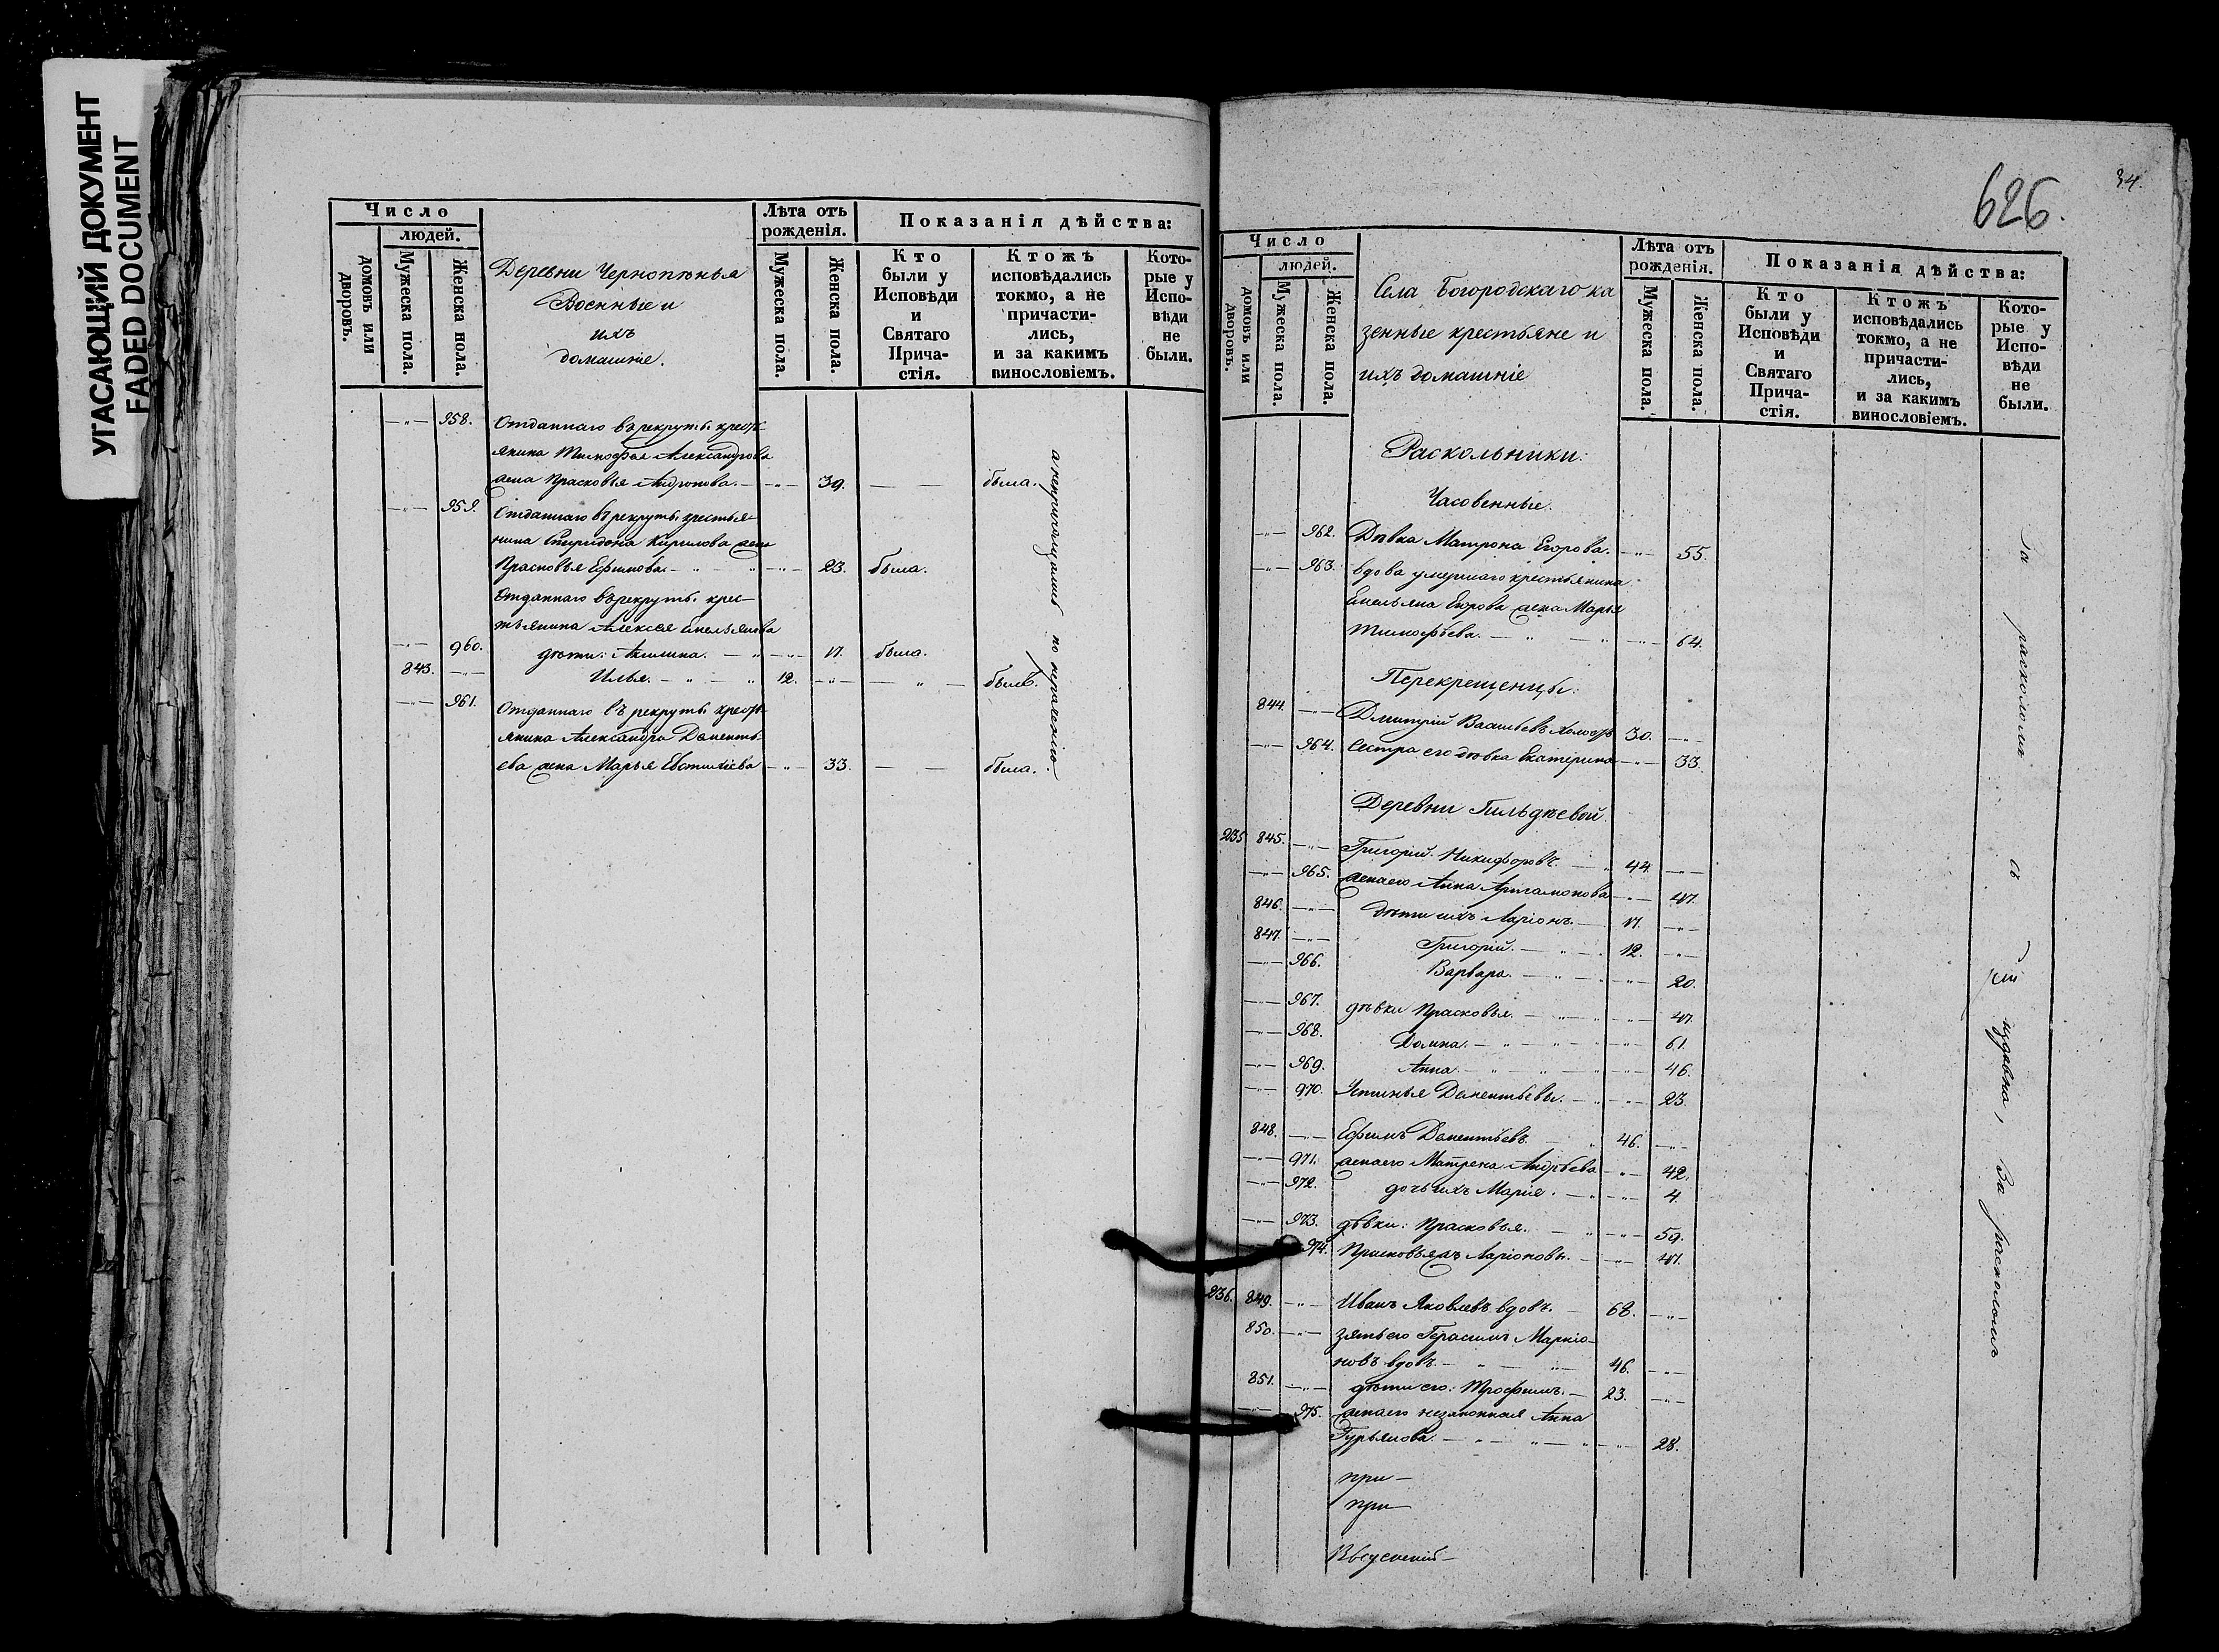 УГАСАЮЩИЙ ДОКУМЕНТ
FADED DOCUMENT
Число
людей.
домовъ или дворовъ.
Мужеска пола.
Женска пола.
Деревни Чернопенья
Военные и
ихъ
домашніе.
Лѣта отъ
рожденія.
Мужеска пола.
Женска пола.
Показанія дѣйства:
Кто
были у
Исповѣди
и
Святаго
Прича-
стія.
Ктожъ
исповѣдались
токмо, а не
причасти-
лись,
и за какимъ
винословіемъ.
Кото-
рые у
Испо-
вѣди
не
были.
—„— 958. Отданнаго въ рекруты кресть
янина Тимофея Александрова
жена Прасковья Андронова. — —„— 39. — — была.
—„— 959. Отданнаго въ рекруты крестья-
нина Спиридона Кирилова жена
Прасковья Ефимова — „ — „ —„— 23. была.
Отданнаго въ рекруты крес-
тьянина Алексея Емельянова
—„— 960. дѣти: Акилина. — „ —„— 17. была.
843. —„— Илья. — „ — „ 12. —„— — „ — былъ.
—„— 961. Отданнаго въ рекруты кресть-
янина Александра Дементь-
ева жена Марья Евстигнѣева —„— 33. — — была.
а непричащалис по нераченію
626.
34.
Число
людей.
домовъ или дворовъ.
Мужеска пола.
Женска пола.
Села Богородскаго ка
зенные крестьяне и
ихъ домашніе
Лѣта отъ
рожденія.
Мужеска пола.
Женска пола.
Показанія дѣйства:
Кто
были у
Исповѣди
и
Святаго
Прича-
стія.
Ктожъ
исповѣдались
токмо, а не
причасти-
лись,
и за какимъ
винословіемъ.
Кото-
рые у
Испо-
вѣди
не
были.
Раскольники:
Часовенные.
—„— 962. Дѣвка Матрона Егорова. —„— 55.
—„— 963. вдова умершаго крестьянина
Емельяна Егорова жена Марья
Тимофѣева. — „ — „ —„— 64.
Перекрещенцы:
844. —„— Дмитрій Васильевъ холостъ 30. —„—
—„— 964. Сестра его дѣвка Екатерина —„— 33.
Деревни Гильдѣевой.
235 845. —„— Григорій Никифоровъ. — „ 44. —„—
—„— 965. жена его Анна Артамонова —„— 47.
846. —„— дѣти ихъ Ларіонъ. — 17. —„—
847. —„— Григорій. — „ — 12. —„—
—„— 966. Варвара. — „ — —„— 20.
—„— 967. дѣвки Прасковья. — „ — —„— 47.
—„— 968. Домна. — „ — „ — —„— 61.
—„— 969. Анна. — „ — „ — —„— 46.
—„— 970. Устинья Дементьевы. — „ —„— 23.
848. —„— Ефимъ Дементьевъ — „ 46. —„—
—„— 971. жена его Матрена Андрѣева —„— 42.
—„— 972. дочь ихъ Марія. — „ —„— 4.
—„— 973. дѣвки: Прасковья. — „ —„— 59.
974. Прасковья жъ Ларіоновы. — —„— 47.
236. 849. —„— Иванъ Яковлевъ вдовъ. — 68. —„—
850. —„— зять его Герасимъ Маркіо-
новъ вдовъ — „ — „ — 46. —„—
851. —„— дѣти его: Трофимъ. — 23. —„—
—„— 975. жена его незаконная Анна
Гурьянова. — „ — „ — „ —„— 28.
при —
при
За расколомъ
съ
издавна, За расколомъ